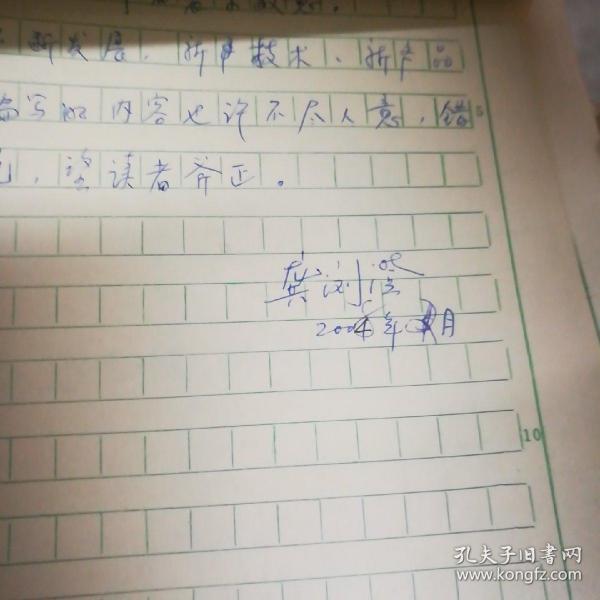 新发展、新技术、新产品
编写的内容也许不尽人意，错
，望读者斧正。
龚
200 年 月
5
10
孔夫子旧书网
www.kongfz.com